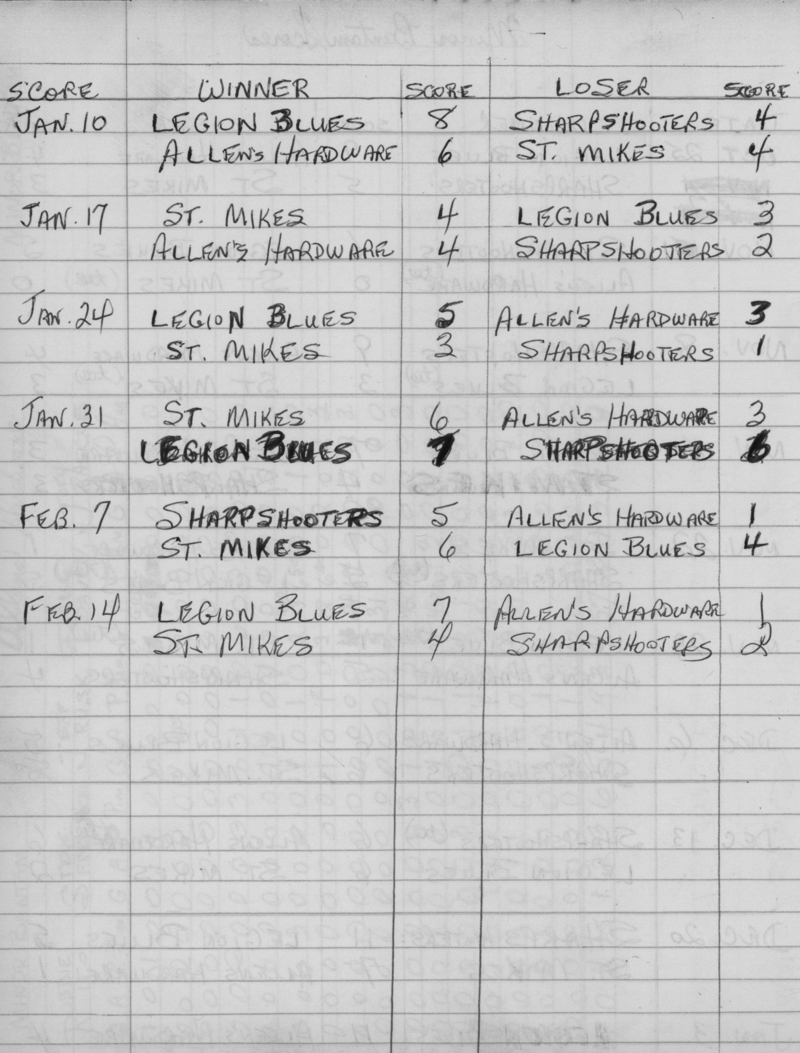 SCORE WINNER SCORE LOSER SCORE
JAN. 10 LEGION BLUES 8 SHARPSHOOTERS 4
ALLEN'S HARDWARE 6 ST. MIKES 4
JAN. 17 ST. MIKES 4 LEGION BLUES 3
ALLEN'S HARDWARE 4 SHARPSHOOTERS 2
JAN. 24 LEGION BLUES 5 ALLEN'S HARDWARE 3
ST. MIKES 3 SHARPSHOOTERS 1
JAN. 31 ST. MIKES 6 ALLEN'S HARDWARE 3
LEGION BLUES 7 SHARPSHOOTERS 6
FEB. 7 SHARPSHOOTERS 5 ALLEN'S HARDWARE 1
ST. MIKES 6 LEGION BLUES 4
FEB. 14 LEGION BLUES 7 ALLEN'S HARDWARE 1
ST. MIKES 4 SHARPSHOOTERS 2